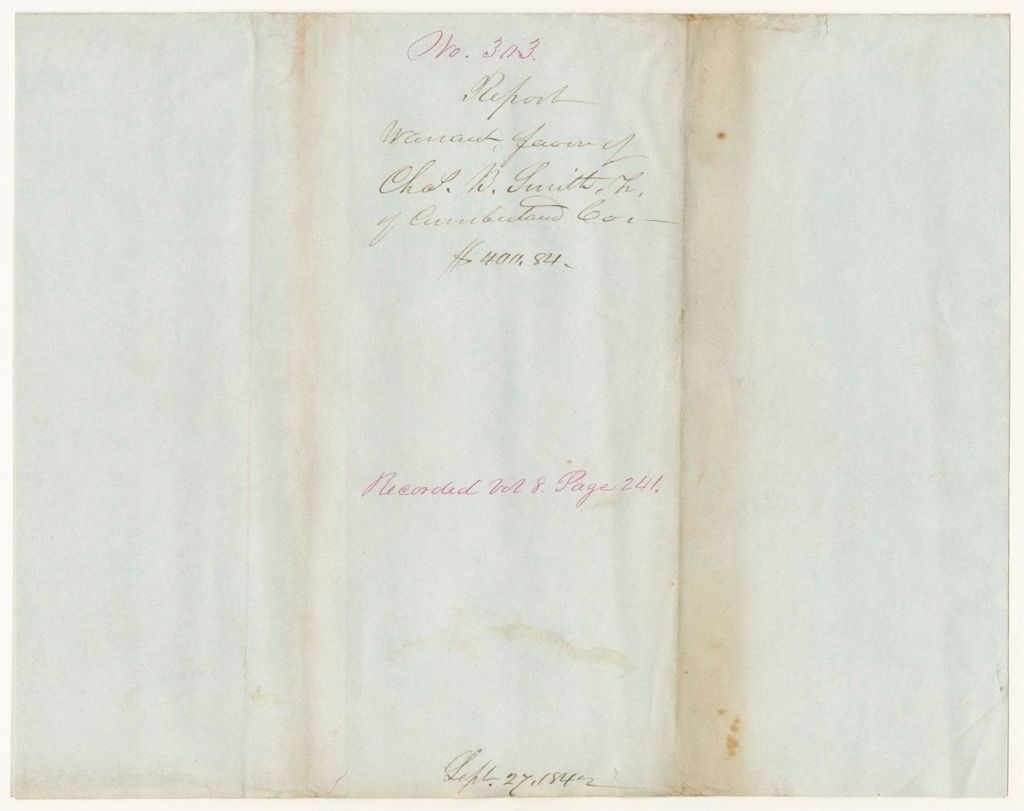 No. 303.
Report
Warrant, favor of
Chas. B. Smith, Tr.
of Cumberland Co. —
$400.84 –
Recorded vol 8. Page 241.
Sept. 27, 1842